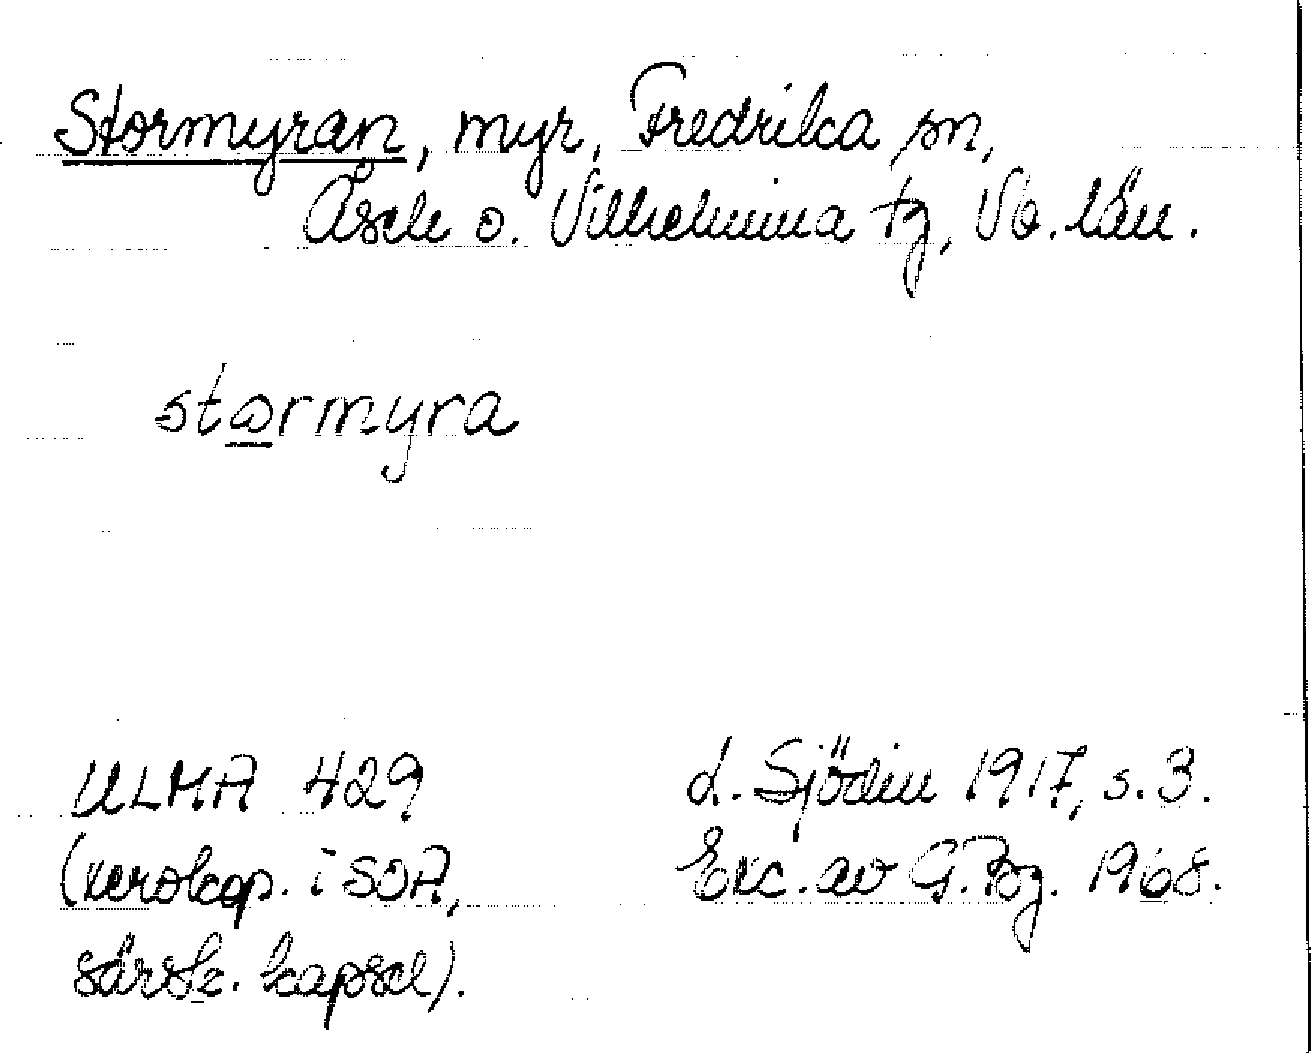 Stormyran, myr, Fredrika sn,
Åsele o. Vilhelmina tg, Vb. län.
stormyra
ULMA 429
(xerokop. i SOA,
särsk. kapsel).
L. Sjödin 1917, s. 3.
Exc. av G. Bg. 1968.